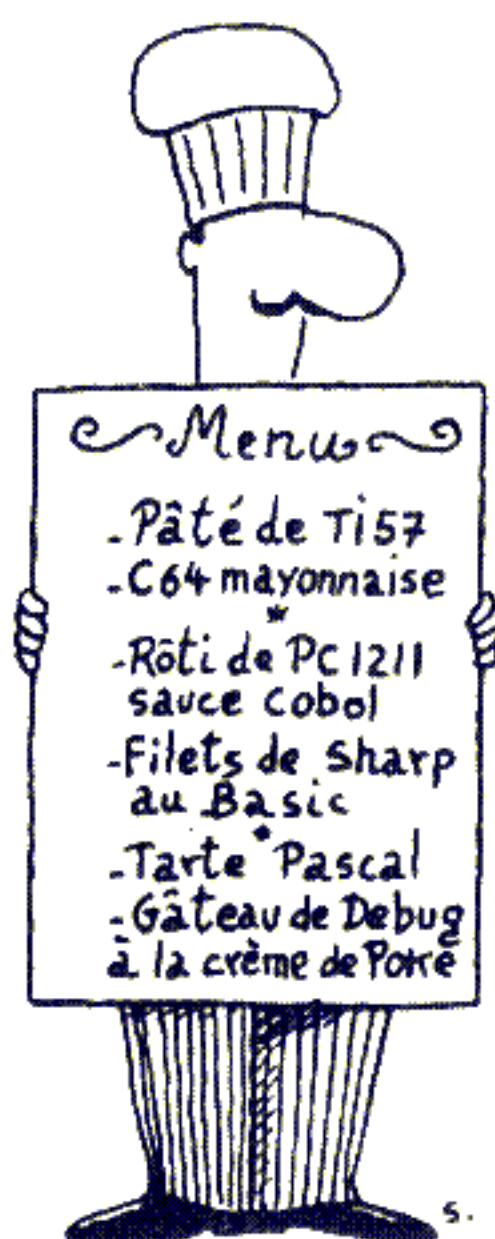 Menu
- Pâté de Ti57
- C64 mayonnaise
*
- Rôti de PC1211
sauce Cobol
- Filets de Sharp
au Basic
*
- Tarte Pascal
- Gâteau de Debug
à la crème de Poke
s.